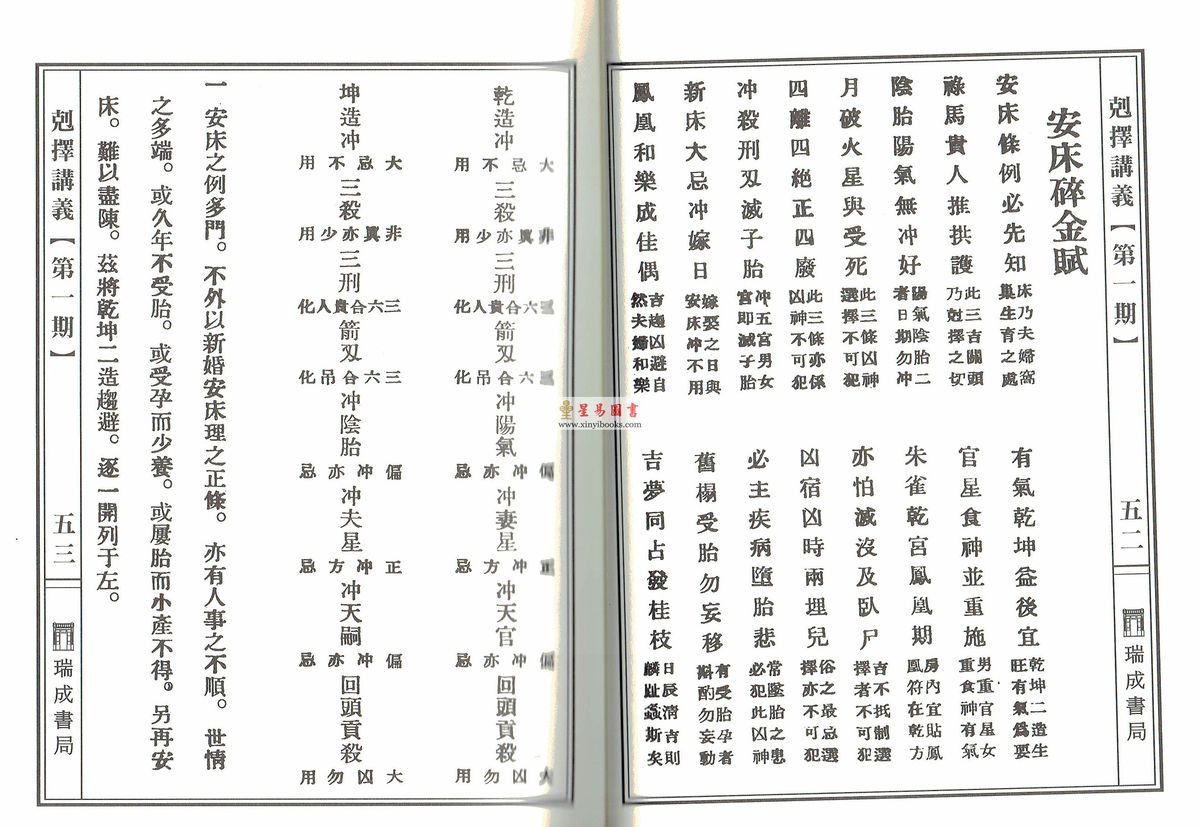 剋擇講義【第一期】 五二 瑞成書局
安床碎金賦
安床條例必先知
床乃夫婦窩
巢生育之處
有氣乾坤益後宜
乾坤二造生
旺有氣為要
祿馬貴人推拱護
此三吉關頭
乃尅擇之切
官星食神並重施
男重官星女
重食神有氣
陰胎陽氣無冲好
陽氣陰胎二
者日期勿冲
朱雀乾宮鳳凰期
房內宜貼鳳
凰符在乾方
月破火星與受死
此三條凶神
選擇不可犯
亦怕滅沒及臥尸
吉不抵制選
擇者不可犯
四離四絕正四廢
此三條亦係
凶神不可犯
凶宿凶時兩埋兒
俗之最忌選
擇亦不可犯
冲殺刑刄滅子胎
冲五宮男女
宮即滅子胎
必主疾病墮胎悲
常墜胎之患
必犯此凶神
新床大忌冲嫁日
嫁娶之日與
安床冲不用
舊榻受胎勿妄移
有受胎孕者
斟酌勿妄動
鳳凰和樂成佳偶
吉趨凶避自
然夫婦和樂
吉夢同占發桂枝
日辰清吉則
麟趾螽斯矣
星易圖書
www.xinyibooks.com
乾造冲
大忌不用
三殺
非異亦少用
三刑
三六合貴人化
箭刄
三六合吊化
冲陽氣
偏冲亦忌
冲妻星
正冲方忌
冲天官
偏冲亦忌
回頭貢殺
大凶勿用
坤造冲
大忌不用
三殺
非異亦少用
三刑
三六合貴人化
箭刄
三六合吊化
冲陰胎
偏冲亦忌
冲夫星
正冲方忌
冲天嗣
偏冲亦忌
回頭貢殺
大凶勿用
一 安床之例多門。不外以新婚安床理之正條。亦有人事之不順。世情
之多端。或久年不受胎。或受孕而少養。或屢胎而小產不得。另再安
床。難以盡陳。茲將乾坤二造趨避。逐一開列于左。
剋擇講義【第一期】 五三 瑞成書局